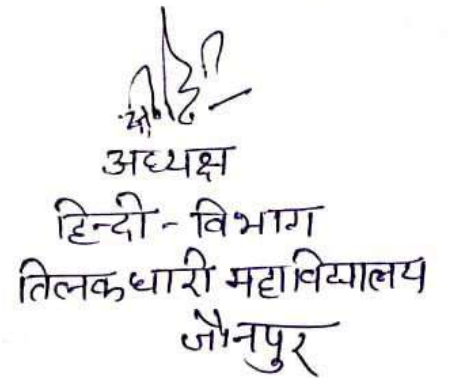 अध्यक्ष
हिन्दी - विभाग
तिलकधारी महाविद्यालय
जौनपुर